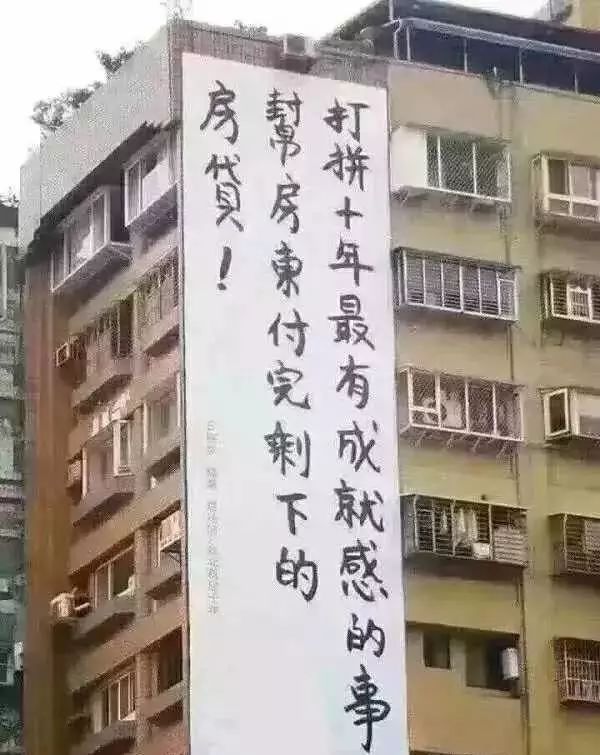 打拼十年最有成就感的事
幫房東付完剩下的
房貸！